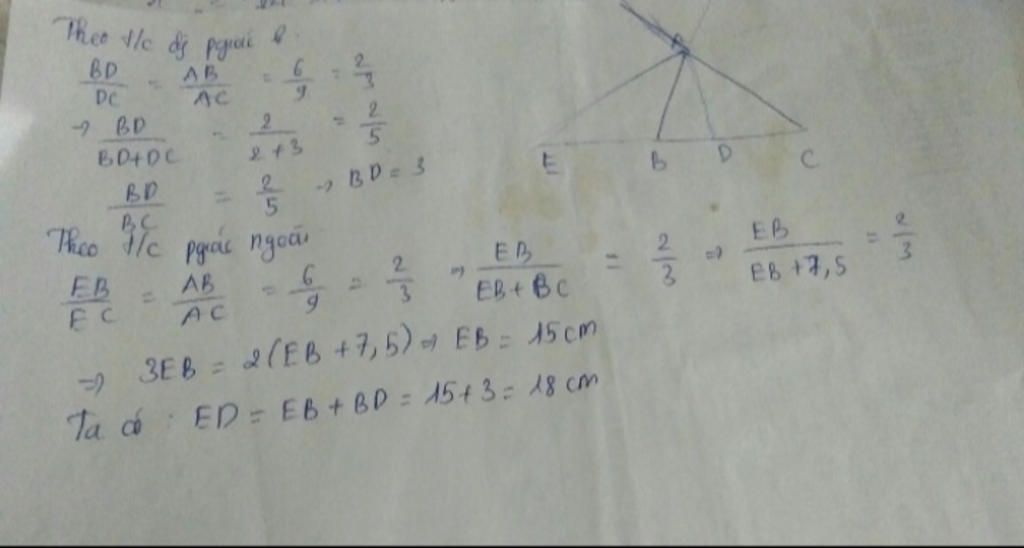 Theo t/c đg pgiác
BD/DC = AB/AC = 6/9 = 2/3
→ BD/BD+DC = 2/2+3 = 2/5
BD/BC = 2/5 → BD = 3
Theo t/c pgiác ngoài
EB/EC = AB/AC = 6/9 = 2/3 ⇒ EB/EB+BC = 2/3 ⇒ EB/EB+7,5 = 2/3
⇒ 3EB = 2(EB+7,5) ⇒ EB = 15cm
Ta có : ED = EB+BD = 15+3 = 18cm
A
E B D C